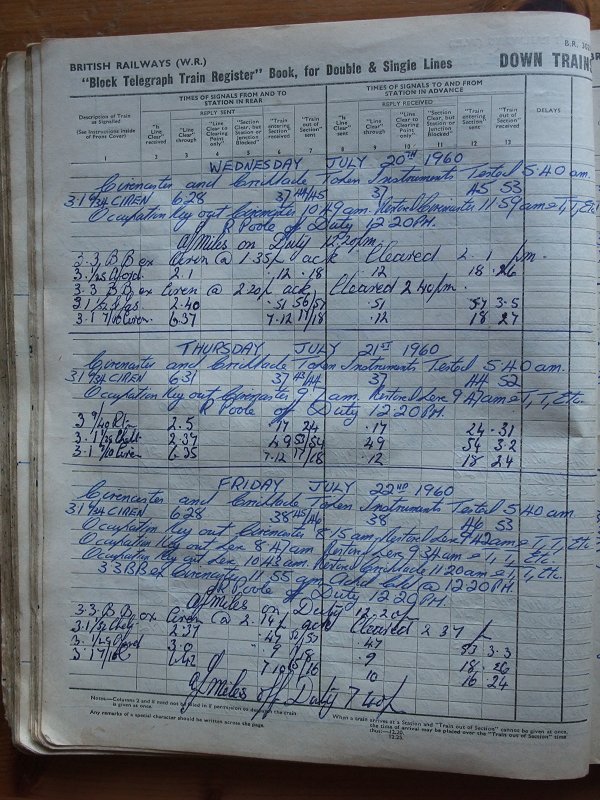 B.R.
BRITISH RAILWAYS (W.R.)
DOWN TRAIN
"Block Telegraph Train Register" Book, for Double & Single Lines
TIMES OF SIGNALS FROM AND TO STATION IN REAR
TIMES OF SIGNALS TO AND FROM STATION IN ADVANCE
REPLY SENT
REPLY RECEIVED
DELAYS
Description of Train as Signalled
(See Instructions inside of Front Cover)
"Is Line Clear" received
"Line Clear" through
"Line Clear to Clearing Point only"
"Section Clear, but Station or Junction Blocked"
"Train entering Section" received
"Train out of Section" sent
"Is Line Clear" sent
"Line Clear" received
"Line Clear to Clearing Point only"
"Section Clear but Station or Junction Blocked"
"Train entering Section" sent
"Train out of Section" received
1 2 3 4 5 6 7 8 9 10 11 12 13
WEDNESDAY JULY 20TH 1960
Cirencester and Cricklade Token Instruments Tested 5.40 am.
CIREN 628 37 44/45 37 45 53
Occupation Key out Cirencester 10 49 am. Restored Cirencester 11 59 am T, T, Etc
R Poole off Duty 12 20 PM.
Miles on Duty 12.20pm.
3.3, B B ex Ciren @ 1.35 ack Cleared 2. 1 pm.
2.1 .12 .18 .12 18 .26
3.3 B B ex Ciren @ 2 20 ack Cleared 2 40 pm.
2.40 .51 56/57 .51 57 3.5
Ciren. 6.37 7.12 17/18 .12 18 27
THURSDAY JULY 21ST 1960
Cirencester and Cricklade Token Instruments Tested 5.40 am.
CIREN 631 37 43/44 37 44 52
Occupation Key out Cirencester 9 am. Restored 9 47 am T, T, Etc.
R Poole off Duty 12 20 PM.
2.5 17 24 .17 24 .31
2.37 49 53/54 49 54 3.2
Ciren 6.35 7.12 17/18 .12 18 24
FRIDAY JULY 22ND 1960
Cirencester and Cricklade Token Instruments Tested 5.40 am.
CIREN 628 38 45/46 38 46 53
Occupation Key out Cirencester 8 15 am. Restored 9 42 am T, T, Etc
Occupation Key out 8 47 am Restored 9 34 am T, T, Etc
Occupation Key out 10 43 am. Restored Cricklade 11 20 am T, T, Etc.
3 3 BB ex Cirencester 11 55 am @ 12 20 PM.
R Poole off Duty 12 20 PM.
Miles on Duty 12.20
3.3 B B, ex Ciren @ 2. ack Cleared 2 37
2.37 .47 52/53 .47 53 3.3
3.0 .9 .9 18 .26
6.42 7.10 15/16 10 16 24
Miles off Duty 7 40
Notes—Columns 2 and 8 need not be filled in if permission to despatch the train is given at once.
Any remarks of a special character should be written across the page.
When a train arrives at a Station and "Train out of Section" cannot be given at once, the time of arrival may be placed over the "Train out of Section" time
thus:—12.20.
12.25.